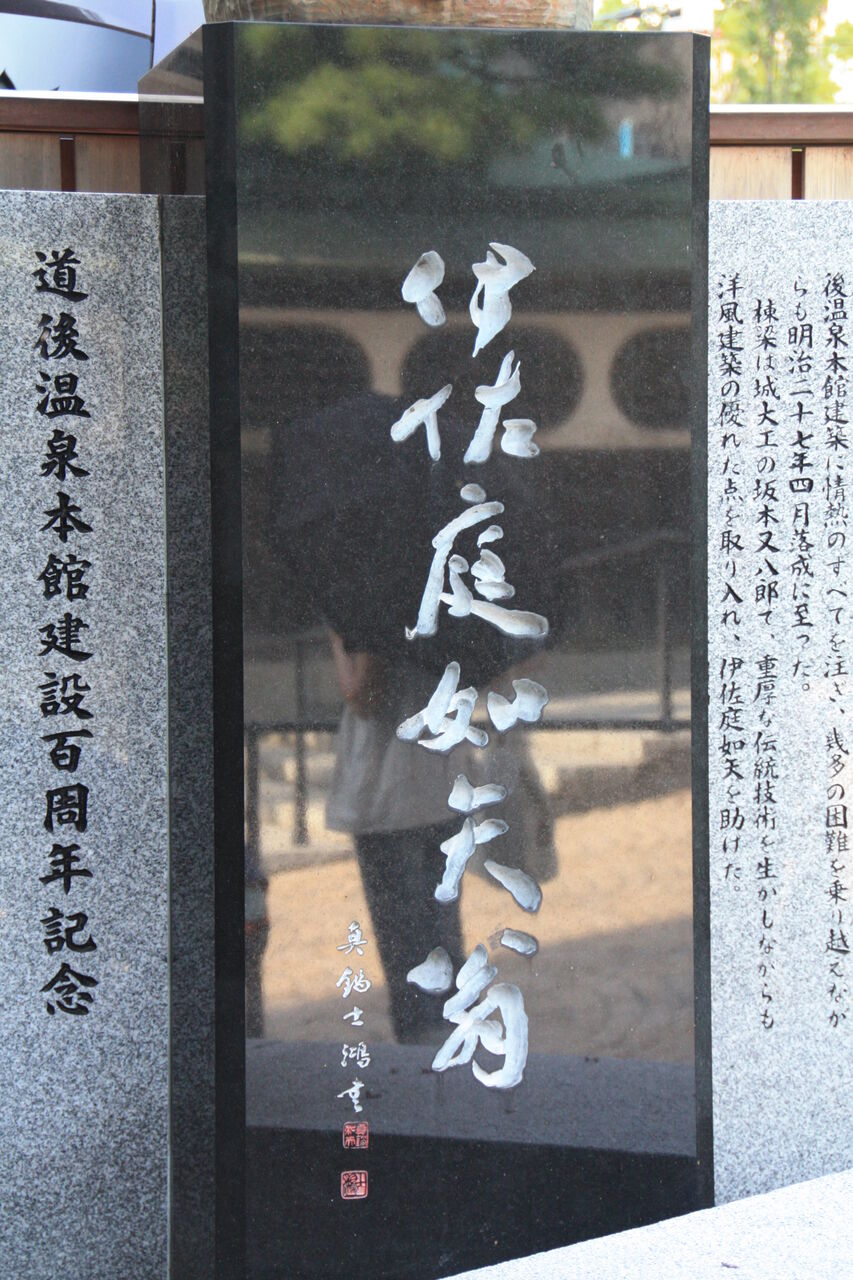 後温泉本館建築に情熱のすべてを注ぎ、幾多の困難を乗り越えなか
らも明治二十七年四月落成に至った。
棟梁は城大工の坂本又八郎で、重厚な伝統技術を生かしながらも
洋風建築の優れた点を取り入れ、伊佐庭如矢を助けた。
伊佐庭如矢翁
真鍋士鴻書
道後温泉本館建設百周年記念